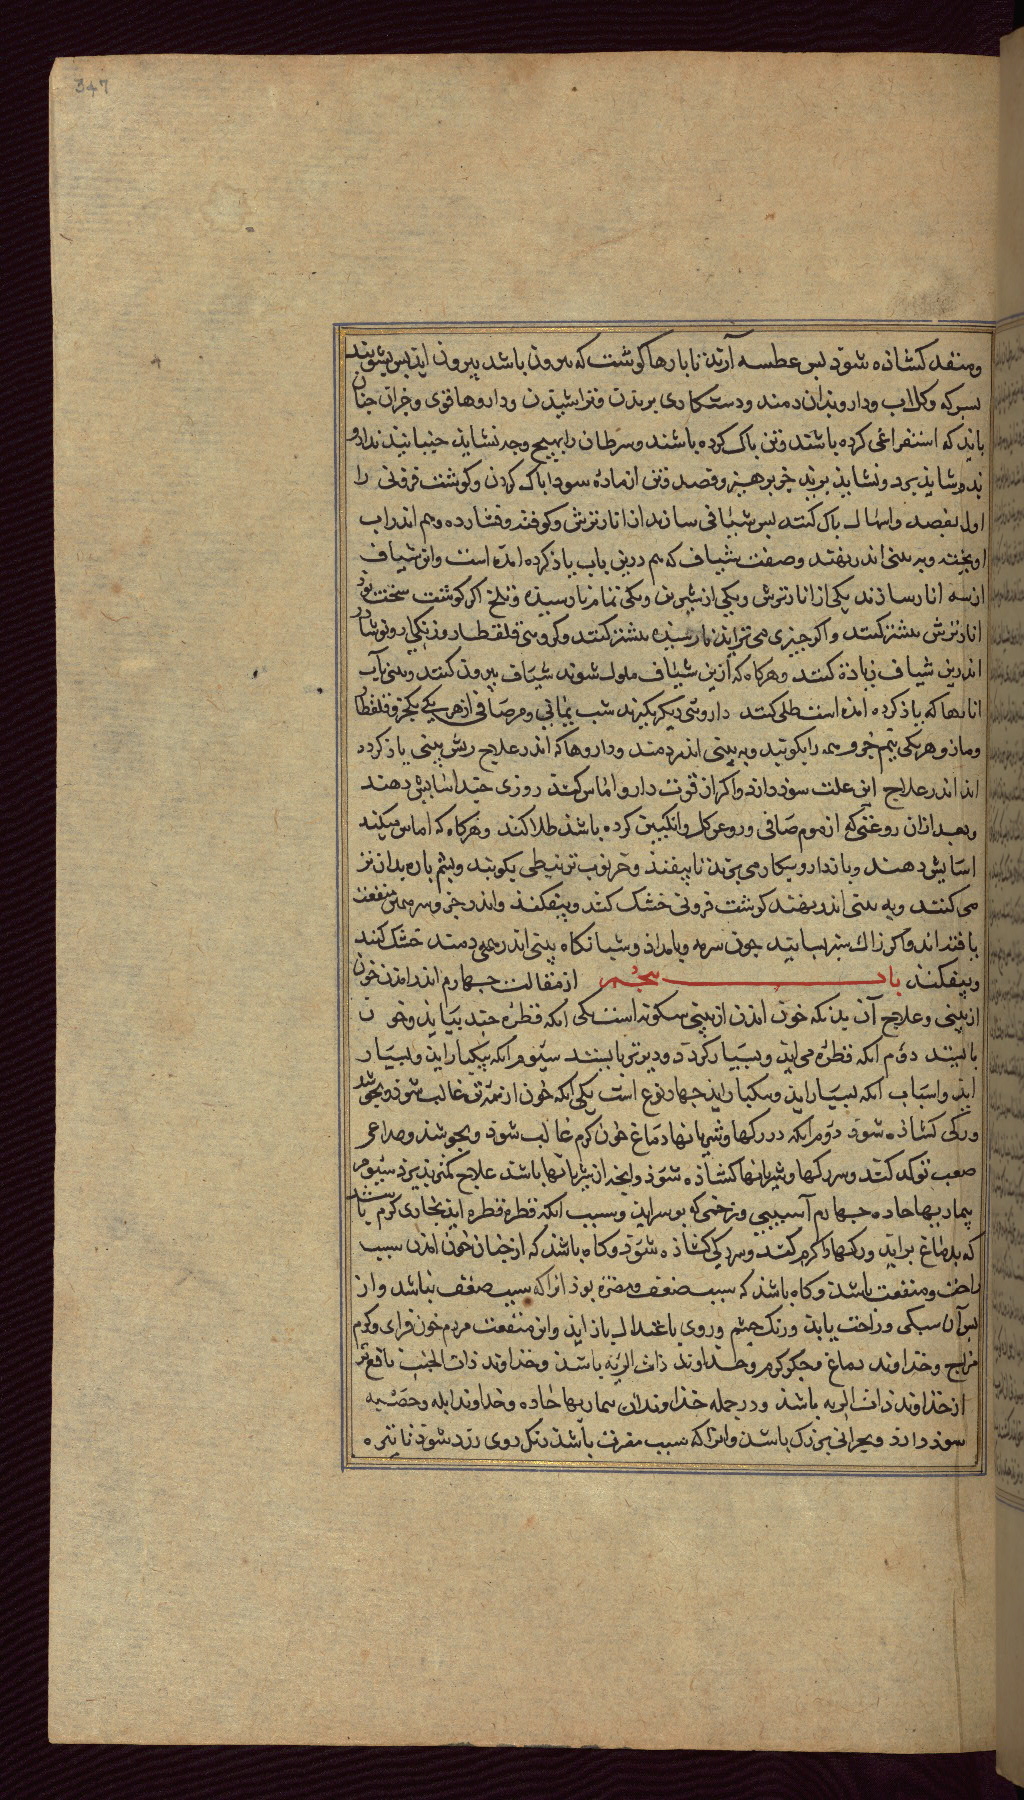 347
ومنفذ کشاذه شود بس عطسه آرند تا بارها کوشت که بیرون باشد بیرون اید بس بشویند
بسرکه وکلاب وداروبدان دمند ودستکاری بریدن وتراشیدن وداروها قوی وجزان جنان
بایذ که استفراغی کرده باشند وتن باک کرده باشند وسرطان رابهیچ وجه نشایذ جنبانیذ نه دارو
نه شایذ برد ونشایذ بریذ جز برهیز وفصد وتن از ماده سودا باک کردن وکوشت فزونی را
اول بفصد واسهال باک کنند بس شیافی سازند از انار ترش وکوفته وفشارده وهم اندر اب
او بخته وبه بینی اندر نهند وصفت شیاف که هم درین باب یاذ کرده امده است واین شیاف
از سه انار سازند یکی از انار ترش ویکی از شیرین ویکی تمام نارسیده وتلخ اکر کوشت سخت بوذ
انار ترش بیشتر کنند واکر جیزی می ترایذ نارسیده بیشتر کنند وکروهی قلقطار وزنکار ونوشادر
اندرین شیاف زیاده کنند وهرکاه که ازین شیاف ملول شوند شیاف بیرون کنند وبینی بآب
انارها که یاذ کرده امده است طلی کنند داروئی دیکر بکیرند شب یمانی ومر صافی از هر یکی یکجزو قلقطار
ومازو هر یکی نیم جزو همه را بکوبند وبه بینی اندر دمند وداروها که اندر علاج ریش بینی یاذ کرده
اند اندر علاج این علت سود دارد واکر از قوت دارو اماس کند روزی جند اسایش دهند
وبعد ازان روغنی که از موم صافی وروغن کل وانکبین کرده باشذ طلا کنند وهرکاه که اماس میکند
اسایش دهند وباز دارو بکار می برند تا بیفتذ وخرنوب تر نبطی بکوبند وبشم باره بدان تر
می کنند وبه بینی اندر نهند کوشت فزونی خشک کند وبیفکند واندر جزو سر همین منفعت
یافته اند واکر زاک سبز بسایند جون سرمه وبامداذ وشبانکاه ببینی اندر همی دمند خشک کند
وبیفکند باب بنجم از مقالت جهارم اندر امدن خون
از بینی وعلاج آن بدانکه خون امدن از بینی سکونه است یکی انکه قطره جند بیایذ وخون
بایستد دوم انکه قطره می ایذ وبسیار کردد ودیرتر بایستد سیوم انکه بیکبار ایذ وبسیار
ایذ واسباب انکه بسیار ایذ وبیکبار ایذ جهار نوع است یکی انکه خون از همه تن غالب شوذ وبجوشذ
ورکی کشاذه شود دوم انکه در رکها وشریانها دماغ خون کرم غالب شود وبجوشذ وصداعی
صعب تولد کند وسر رکها وشریانها کشاذه شوذ وانچه از شریانها باشد علاج کمتر بذیرد سیوم
بیماریها حاده جهارم آسیبی وزخمی که بر سر ایذ وسبب انکه قطره قطره ایذ بخاری کرم باشذ
که بدماغ براید ورکها را کرم کند وسر رکی کشاذه شود وکاه باشذ که از جنان خون امدن سبب
راحت ومنفعت باشد وکاه باشذ که سبب ضعف ومضرة بوذ انرا که سبب ضعف نباشد واز
بس آن سبکی وراحت یابذ ورنک جشم وروی باعتدال باز ایذ واین منفعت مردم خون فزای وکرم
مزاج وخذاوند دماغ وجکر کرم وخداوند ذات الریه باشد وخذاوند ذات الجنب نافع تر
از خذاوند ذات الریه باشذ ودر جمله خذاوندان بیماریها حاده وخداوند ابله وحصبه
سوذ دارد وبحرانی بزرک باشد وانرا که سبب مضرت باشذ رنک روی زرد شود تا تیره